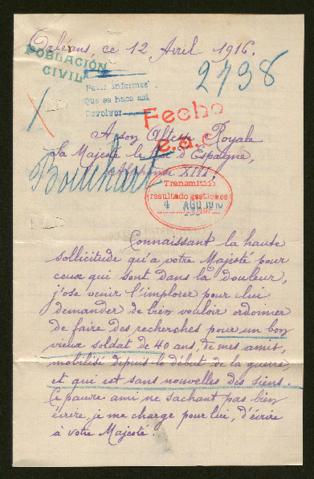 Orléans, ce 12 Avril 1916.
POBLACIÓN
CIVIL
2798
Que se haga así
Devolver
Fecho
A son Altesse Royale
Sa Majesté le Roi d'Espagne,
Alphonse XIII,
Bouchart
Transmitido
resultado gestiones
4 AGO 191
Connaissant la haute
sollicitude qu'a votre Majesté pour
ceux qui sont dans la Douleur,
j'ose venir l'implorer pour lui
demander de bien vouloir ordonner
de faire des recherches pour un bon
vieux soldat de 40 ans, de mes amis,
mobilisé depuis le début de la guerre
et qui est sans nouvelles des siens.
Ce pauvre ami ne sachant pas bien
écrire, je me charge pour lui, d'écrire
à votre Majesté.